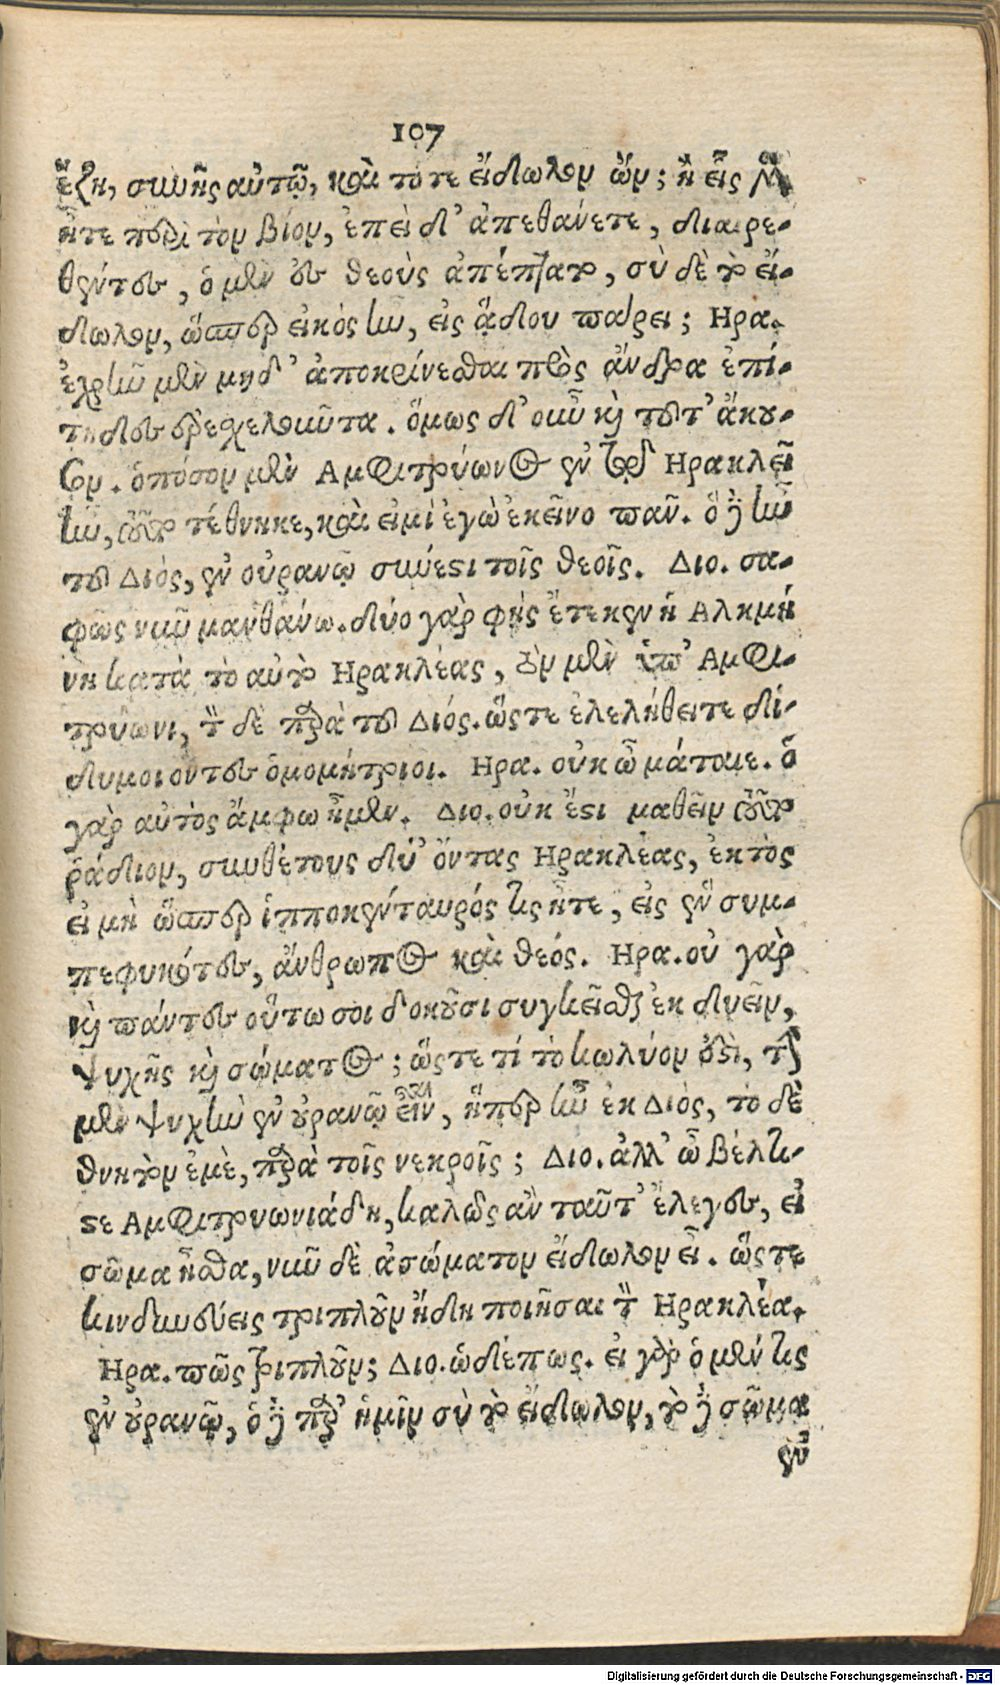 107
ἔζη, συνῆς αὐτῷ, καὶ τό τε εἴδωλον ὤν; ἢ εἷς μὲν
ἦτε παρὰ τὸν βίον, ἐπεὶ δ' ἀπεθάνετε, διαιρε-
θέντες, ὁ μὲν ἐς θεοὺς ἀπέπτατο, σὺ δὲ τὸ εἴ-
δωλον, ὥσπερ εἰκὸς ἦν, εἰς ᾅδου πάρει; Ηρα.
ἐχρῆν μὲν μηδ' ἀποκρίνεσθαι πρὸς ἄνδρα ἐπί-
τηδες ἐρεσχελοῦντα. ὅμως δ' οὖν καὶ τοῦτ' ἄκου-
σον. ὁπόσον μὲν Αμφιτρύωνος ἐν τῷ Ηρακλεῖ
ἦν, τοῦτο τέθνηκε, καὶ εἰμὶ ἐγὼ ἐκεῖνο πᾶν. ὃ δὲ ἦν
τοῦ Διὸς, ἐν οὐρανῷ σύνεστι τοῖς θεοῖς. Διο. σα-
φῶς νῦν μανθάνω. δύο γὰρ φῂς ἔτεκεν ἡ Αλκμή
νη κατὰ τὸ αὐτὸ Ηρακλέας, τὸν μὲν ὑπ' Αμφι-
τρύωνι, τὸν δὲ παρὰ τοῦ Διός. ὥστε ἐλελήθειτε δί-
δυμοι ὄντες ὁμομήτριοι. Ηρα. οὐκ ὦ μάταιε. ὁ
γὰρ αὐτὸς ἄμφω ἦμεν. Διο. οὐκ ἔστι μαθεῖν τοῦτο
ῥάδιον, συνθέτους δύ' ὄντας Ηρακλέας, ἐκτὸς
εἰ μὴ ὥσπερ ἱπποκένταυρός τις ἦτε, εἰς ἓν συμ-
πεφυκότες, ἄνθρωπος καὶ θεός. Ηρα. οὐ γὰρ
καὶ πάντες οὕτω σοι δοκοῦσι συγκεῖσθαι ἐκ δυεῖν,
ψυχῆς καὶ σώματος; ὥστε τί τὸ κωλύον ἐστὶ, τὴν
μὲν ψυχὴν ἐν οὐρανῷ εἶναι, ἥπερ ἦν ἐκ Διὸς, τὸ δὲ
θνητὸν ἐμὲ, παρὰ τοῖς νεκροῖς; Διο. ἀλλ' ὦ βέλτι-
στε Αμφιτρυωνιάδη, καλῶς ἂν ταῦτ' ἔλεγες, εἰ
σῶμα ἦσθα, νῦν δὲ ἀσώματον εἴδωλον εἶ. ὥστε
κινδυνεύεις τριπλοῦν ἤδη ποιῆσαι τὸν Ηρακλέα.
Ηρα. πῶς τριπλοῦν; Διο. ὡδίεπως. εἰ γὰρ ὁ μέν τις
ἐν οὐρανῷ, ὁ δὲ παρ' ἡμῖν σὺ τὸ εἴδωλον, τὸ δὲ σῶμα
ἐν
Digitalisierung gefördert durch die Deutsche Forschungsgemeinschaft - DFG